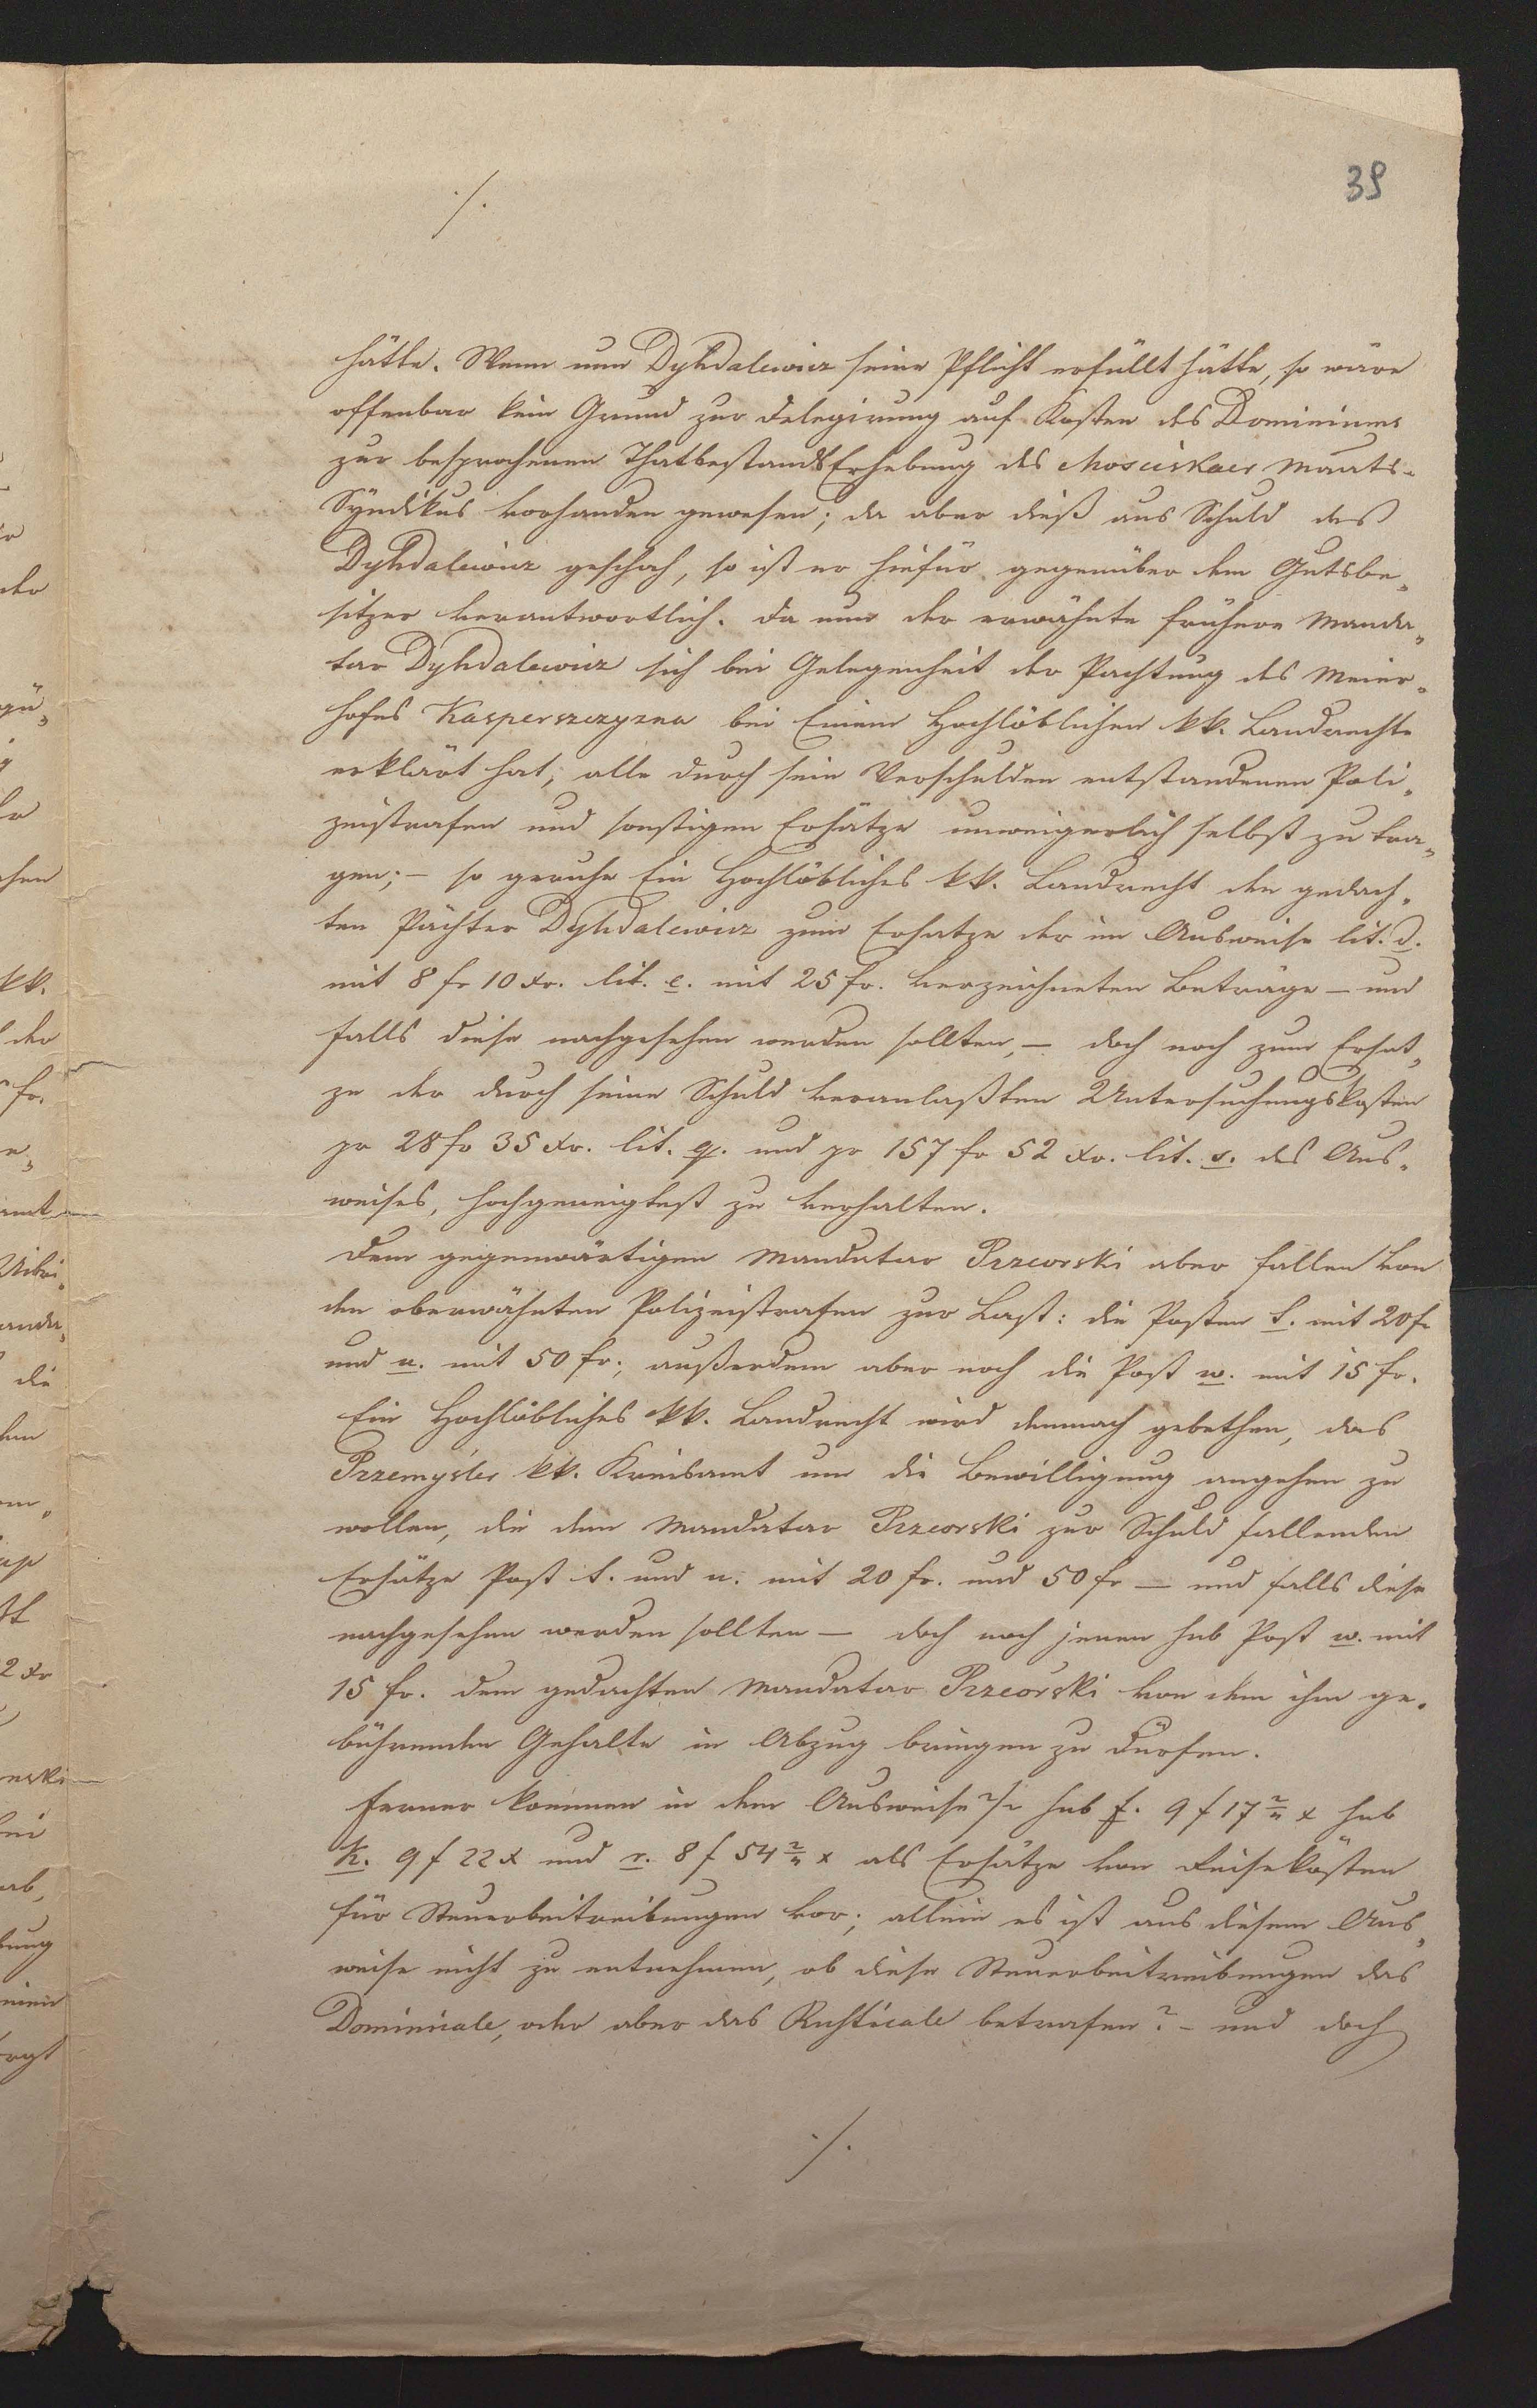 39
./.
hätte. Wenn nun Dyhdalewicz seine Pflicht erfüllt hätte, so wäre
offenbar kein Grund zur Delegirung auf Kosten des Dominiums
zur besprochenen ThatbestandsErhebung des Mosciskaer Mgts-
Syndikus vorhanden gewesen; da aber dieß aus Schuld des
Dyhdalewicz geschah, so ist er hiefür gegenüber dem Gutsbe„
sitzer verantwortlich. Da nun der erwähnte frühere Manda„
tar Dyhdalewicz sich bei Gelegenheit der Pachtung des Meier„
hofes Kasperszczyzna bei Einem Hochlöblichen kk. Landrechte
erklärt hat, alle durch sein Verschulden entstandenen Poli„
zeistrafen und sonstigen Ersätze unweigerlich selbst zu tra„
gen; – so geruhe Ein Hochlöbliches kk. Landrecht den gedach„
ten Pächter Dyhdalewicz zum Ersatze der im Ausweise lit. d.
mit 8 fr 10 xr. lit. e. mit 25 fr. verzeichneten Beträge – und
falls diese nachgesehen werden sollten, – doch noch zum Ersat„
ze der durch seine Schuld veranlaßten Untersuchungskosten
pr 28 fr 35 xr. lit. q. und pr 157 fr 52 xr. lit. s. des Aus„
weises, hochgeneigtest zu verhalten.
Dem gegenwärtigen Mandatar Przeorski aber fallen von
den oberwähnten Polizeistrafen zur Last: die Posten t. mit 20 fr
und u. mit 50 fr.; außerdem aber noch die Post w. mit 15 fr.
Ein Hochlöbliches kk. Landrecht wird demnach gebethen, das
Przemysler kk. Kreisamt um die Bewilligung angehen zu
wollen, die dem Mandatar Przeorski zur Schuld fallenden
Ersätze Post t. und u. mit 20 fr. und 50 fr – und falls diese
nachgesehen werden sollten – doch noch jenen sub Post w. mit
15 fr. dem gedachten Mandatar Przeorski von dem ihm ge„
bührenden Gehalte in Abzug bringen zu dürfen.
Ferner kommen in dem Ausweise ?/. sub f. 9 f 17 2/4 x sub
k. 9 f 22 x und r. 8 f 54 2/4 x als Ersätze von Reisekosten
für Steuerbeitreibungen vor; allein es ist aus diesem Aus„
weise nicht zu entnehmen, ob diese Steuerbeitreibungen das
Dominicale, oder aber das Rusticale betrafen? – und doch
./.